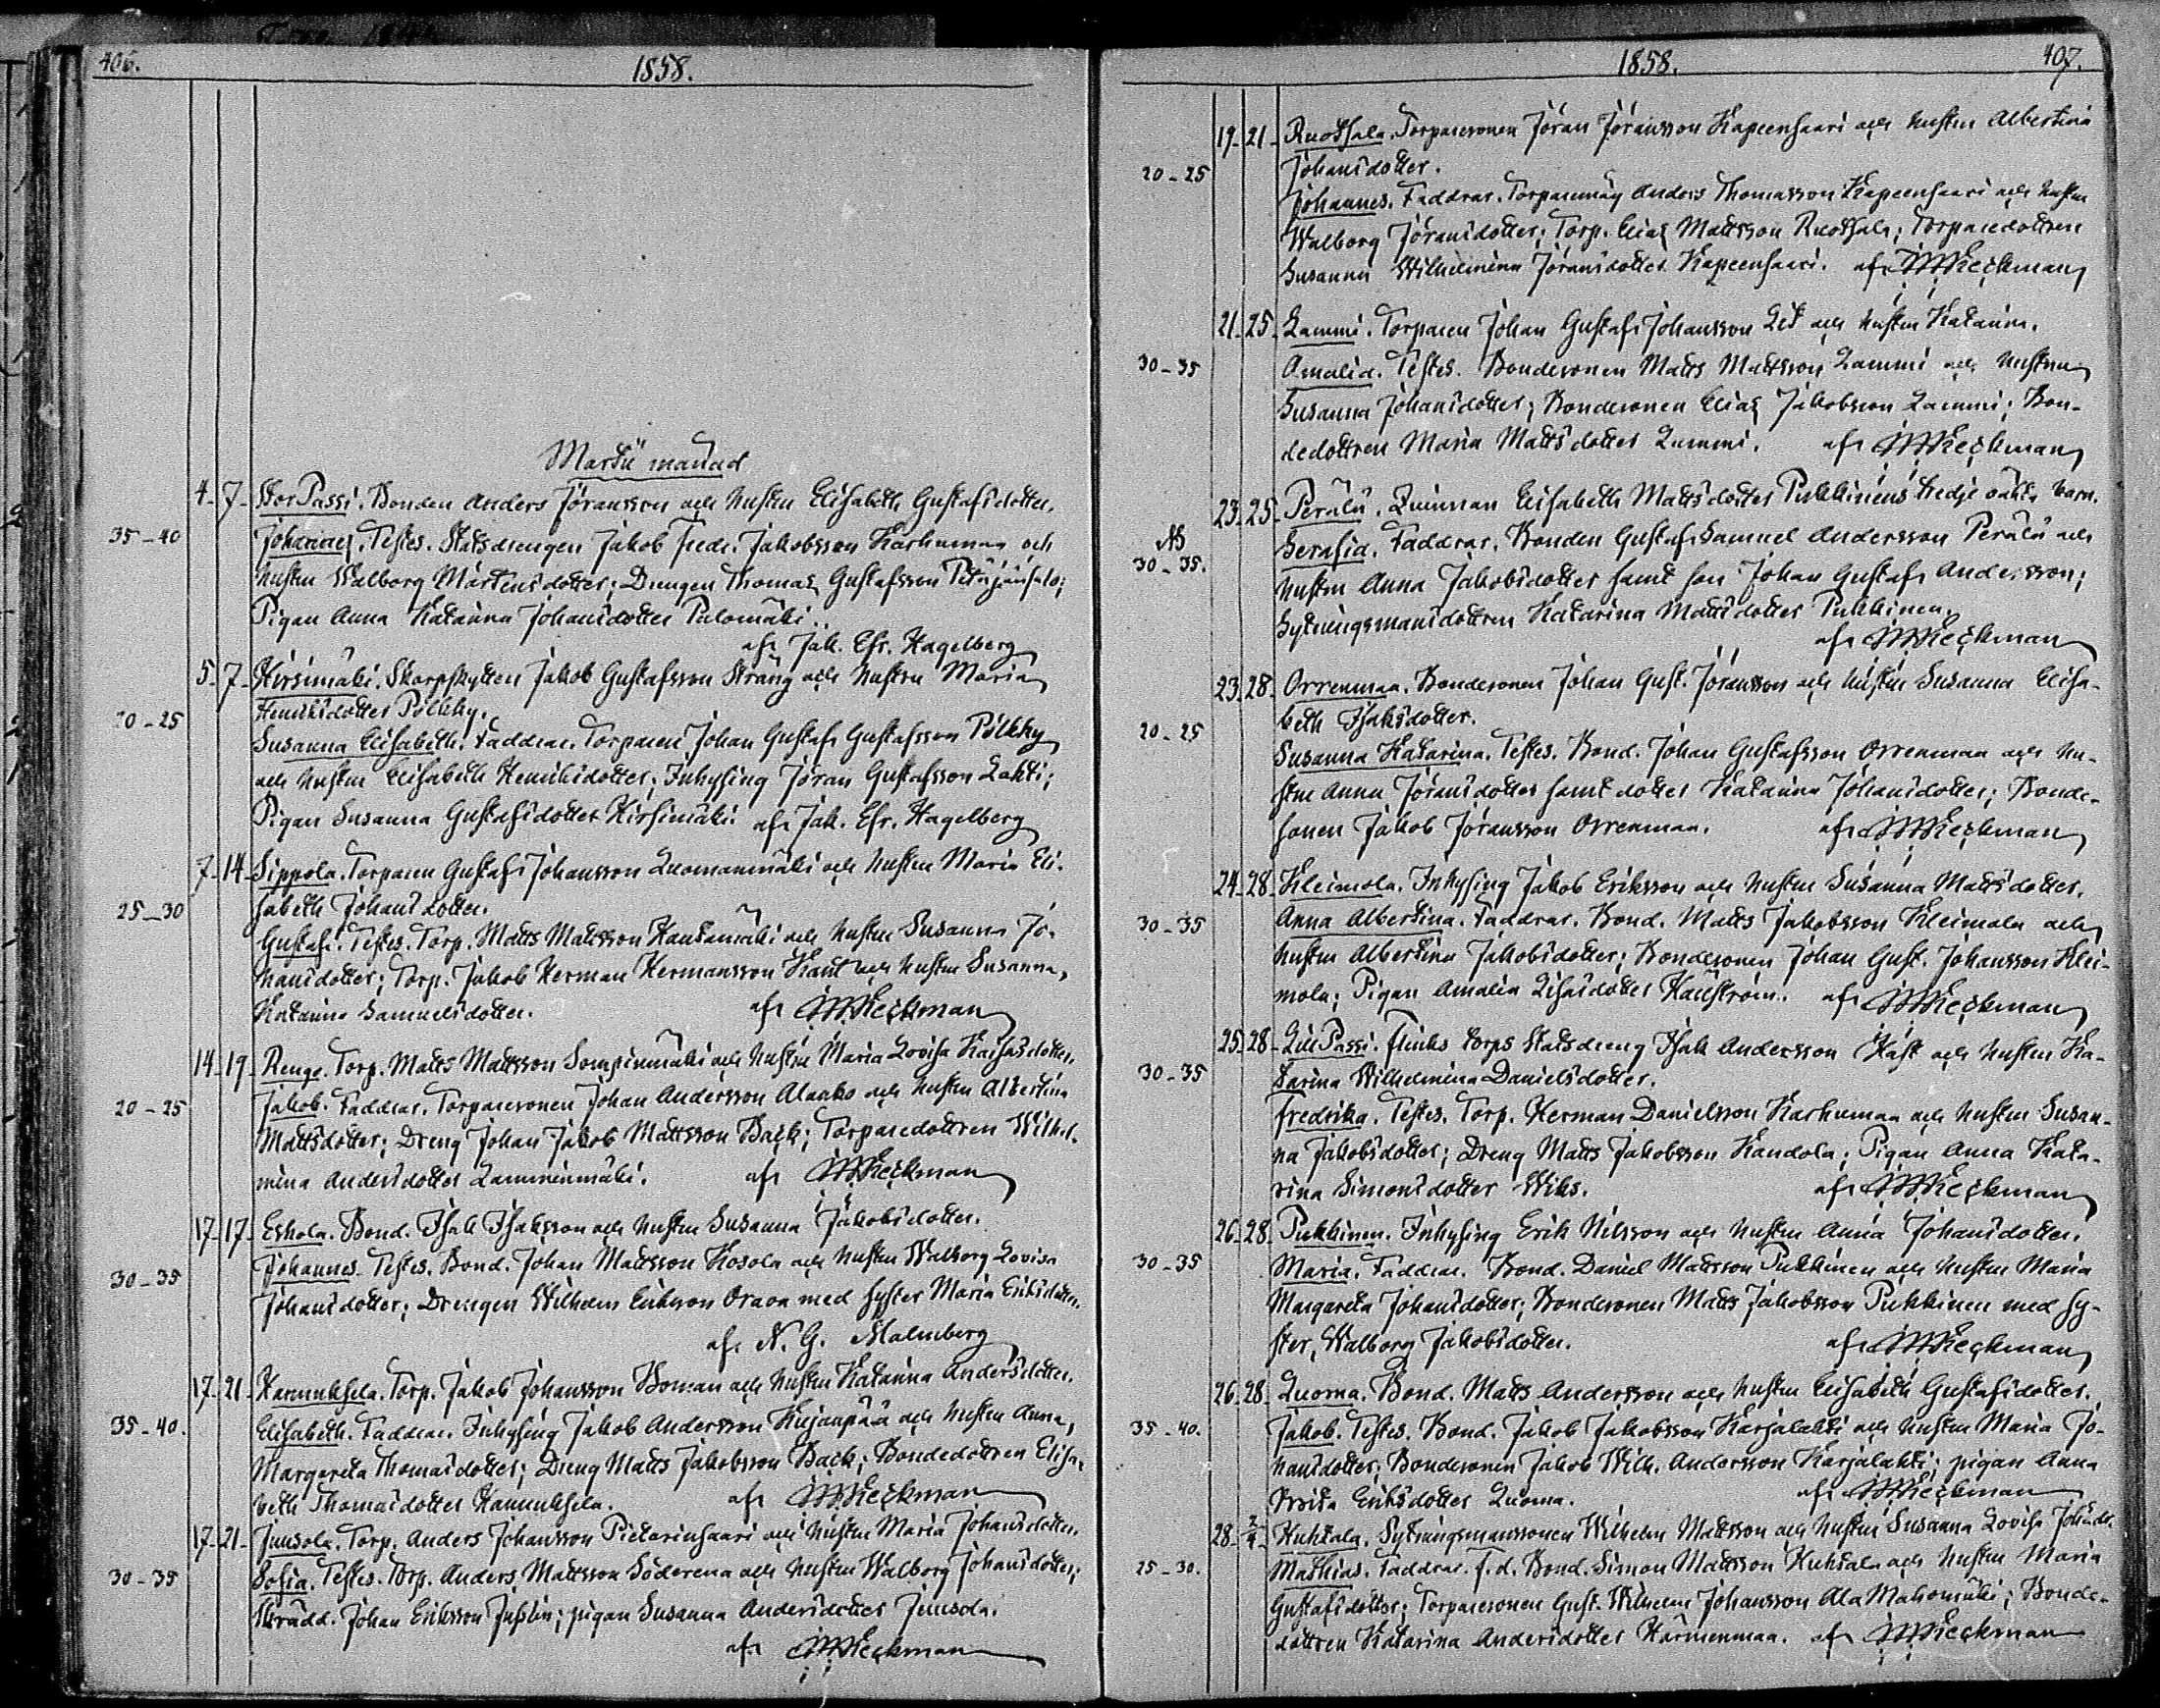 406.
1858.
Martii månad
4-7- StorPassi. Bonden Anders Jöransson och hustru Elisabeth Gustafsdotter.
35-40 Johannes. Testes. Statsdrengen Jakob Fredr. Jakobsson Karhumaa och
hustru Walborg Mårtensdotter; Drengen Thomas Gustafsson
Pigan Anna Katarina Johansdotter Palomäki.
af Jak. Efr. Hagelberg
5-7- Hirsimäki. Skarpskytten Jakob Gustafsson Sträng och hustru Maria
Henriksdotter Pölkky.
20-25 Susanna Elisabeth. Faddrar. Torparen Johan Gustaf Gustafsson Pölkky
och hustru Elisabeth Henriksdotter; Inhysing Jöran Gustafsson Lahti;
Pigan Susanna Gustafsdotter Hirsimäki. af Jak. Efr. Hagelberg
7-14- Sippola. Torparen Gustaf Johansson Luomanmäki och hustru Maria Eli-
sabeth Johansdotter.
25-30 Gustaf. Testes. Torp. Matts Mattsson Hautamäki och hustru Susanna Jo-
hansdotter; Torp. Jakob Herman Hermansson och hustru Susanna
Katarina Samuelsdotter. af Heckman
14-19 Renge. Torp. Matts Mattsson och hustru Maria Lovisa
20-25 Jakob. Faddrar. Torparesonen Johan Andersson Alaako och hustru Albertina
Mattsdotter; Dreng Johan Jakob Mattsson Back; Torparedottren Wilhel-
mina Andersdotter Lamminmäki. af Heckman
17-17- Eskola. Bond. Isak Isaksson och hustru Susanna Jakobsdotter.
30-35 Johannes. Testes. Bond. Johan Mattsson Kosola och hustru Walborg Lovisa
Johansdotter; Drengen Wilhelm Eriksson Orava med syster Maria Eriksdotter.
af N. G. Malmberg
17-21- Karunksela. Torp. Jakob Johansson Homan och hustru Katarina Andersdotter.
35-40. Elisabeth. Faddrar. Inhysing Jakob Andersson Kujanpää och hustru Anna
Margareta Thomasdotter; Dreng Matts Jakobsson Back; Bondedottren Elisa-
beth Thomasdotter af Heckman
17-21- Junsola. Torp. Anders Johansson Pietarinsaari och hustru Maria Johansdotter.
30-35 Sofia. Testes. Torp. Anders Mattsson Söderena och hustru Walborg Johansdotter;
Skrädd. Johan Eriksson Juslin; pigan Susanna Andersdotter Junsola.
af Heckman
1858.
407.
19-21- Ruotsala. Torparesonen Jöran Jöransson Kapeensaari och hustru Albertina
20-25 Johansdotter.
Johannes. Faddrar. Torparemåg Anders Thomasson Kapeensaari och hustru
Walborg Jöransdotter; Torp. Elias Mattsson Ruotsala; Torparedottren
Susanna Wilhelmina Jöransdotter Kapeensaari. af Heckman
21-25- Lammi. Torparen Johan Gustaf Johansson och hustru Katarina.
30-35 Amalia. Testes. Bondesonen Matts Mattsson Lammi och hustru
Susanna Johansdotter; Bondesonen Elias Jakobsson Lammi; Bon-
dedottren Maria Mattsdotter Lammi. af Heckman
23-25- Perälä. Quinnan Elisabeth Mattsdotter Pukkinens tredje oäkta barn.
30-35. Serafia. Faddrar. Bonden Gustaf Samuel Andersson Perälä och
hustru Anna Jakobsdotter samt son Johan Gustaf Andersson;
Sytningsmansdottren Katarina Mattsdotter Pukkinen.
af Heckman
23-28- Orrenmaa. Bondesonen Johan Gust. Jöransson och hustru Susanna Elisa-
beth Isaksdotter.
20-25 Susanna Katarina. Testes. Bond. Johan Gustafsson Orrenmaa och hu-
stru Anna Jöransdotter samt dotter Katarina Johansdotter; Bonde-
sonen Jakob Jöransson Orrenmaa. af Heckman
24-28- Kleimola. Inhysing Jakob Eriksson och hustru Susanna Mattsdotter.
30-35 Anna Albertina. Faddrar. Bond. Matts Jakobsson Kleimola och
hustru Albertina Jakobsdotter; Bondesonen Johan Gust. Johansson Klei-
mola; Pigan Amalia af Heckman
25-28- LillPassi. Finks torps Statsdreng Isak Andersson Kast och hustru Ka-
30-35 tarina Wilhelmina Danielsdotter.
Fredrika. Testes. Torp. Herman Danielsson Karhumaa och hustru Susan-
na Jakobsdotter; Dreng Matts Jakobsson Kandola; Pigan Anna Kata-
rina Simonsdotter Wiks. af Heckman
26-28- Pukkinen. Inhysing Erik Nilsson och hustru Anna Johansdotter.
30-35 Maria. Faddrar. Bond. Daniel Mattsson Pukkinen och hustru Maria
Margareta Johansdotter; Bondesonen Matts Jakobsson Pukkinen med sy-
ster, Walborg Jakobsdotter. af Heckman
26-28- Luoma. Bond. Matts Andersson och hustru Elisabeth Gustafsdotter.
35-40. Jakob. Testes. Bond. Jakob Jakobsson Karjalahti och hustru Maria Jo-
hansdotter; Bondesonen Jakob Wilh. Andersson Karjalahti; pigan Anna
Brita Eriksdotter Luoma. af Heckman
28-2/4- Huhtala. Sytningsmanssonen Wilhelm Mattsson och hustru Susanna Lovisa Johansdr.
25-30. Mathias. Faddrar. f.d. Bond. Simon Mattsson Huhtala och hustru Maria
Gustafsdotter; Torparesonen Gust. Wilhelm Johansson Ala Mahomäki; Bonde-
dottren Katarina Andersdotter Härmenmaa. af Heckman